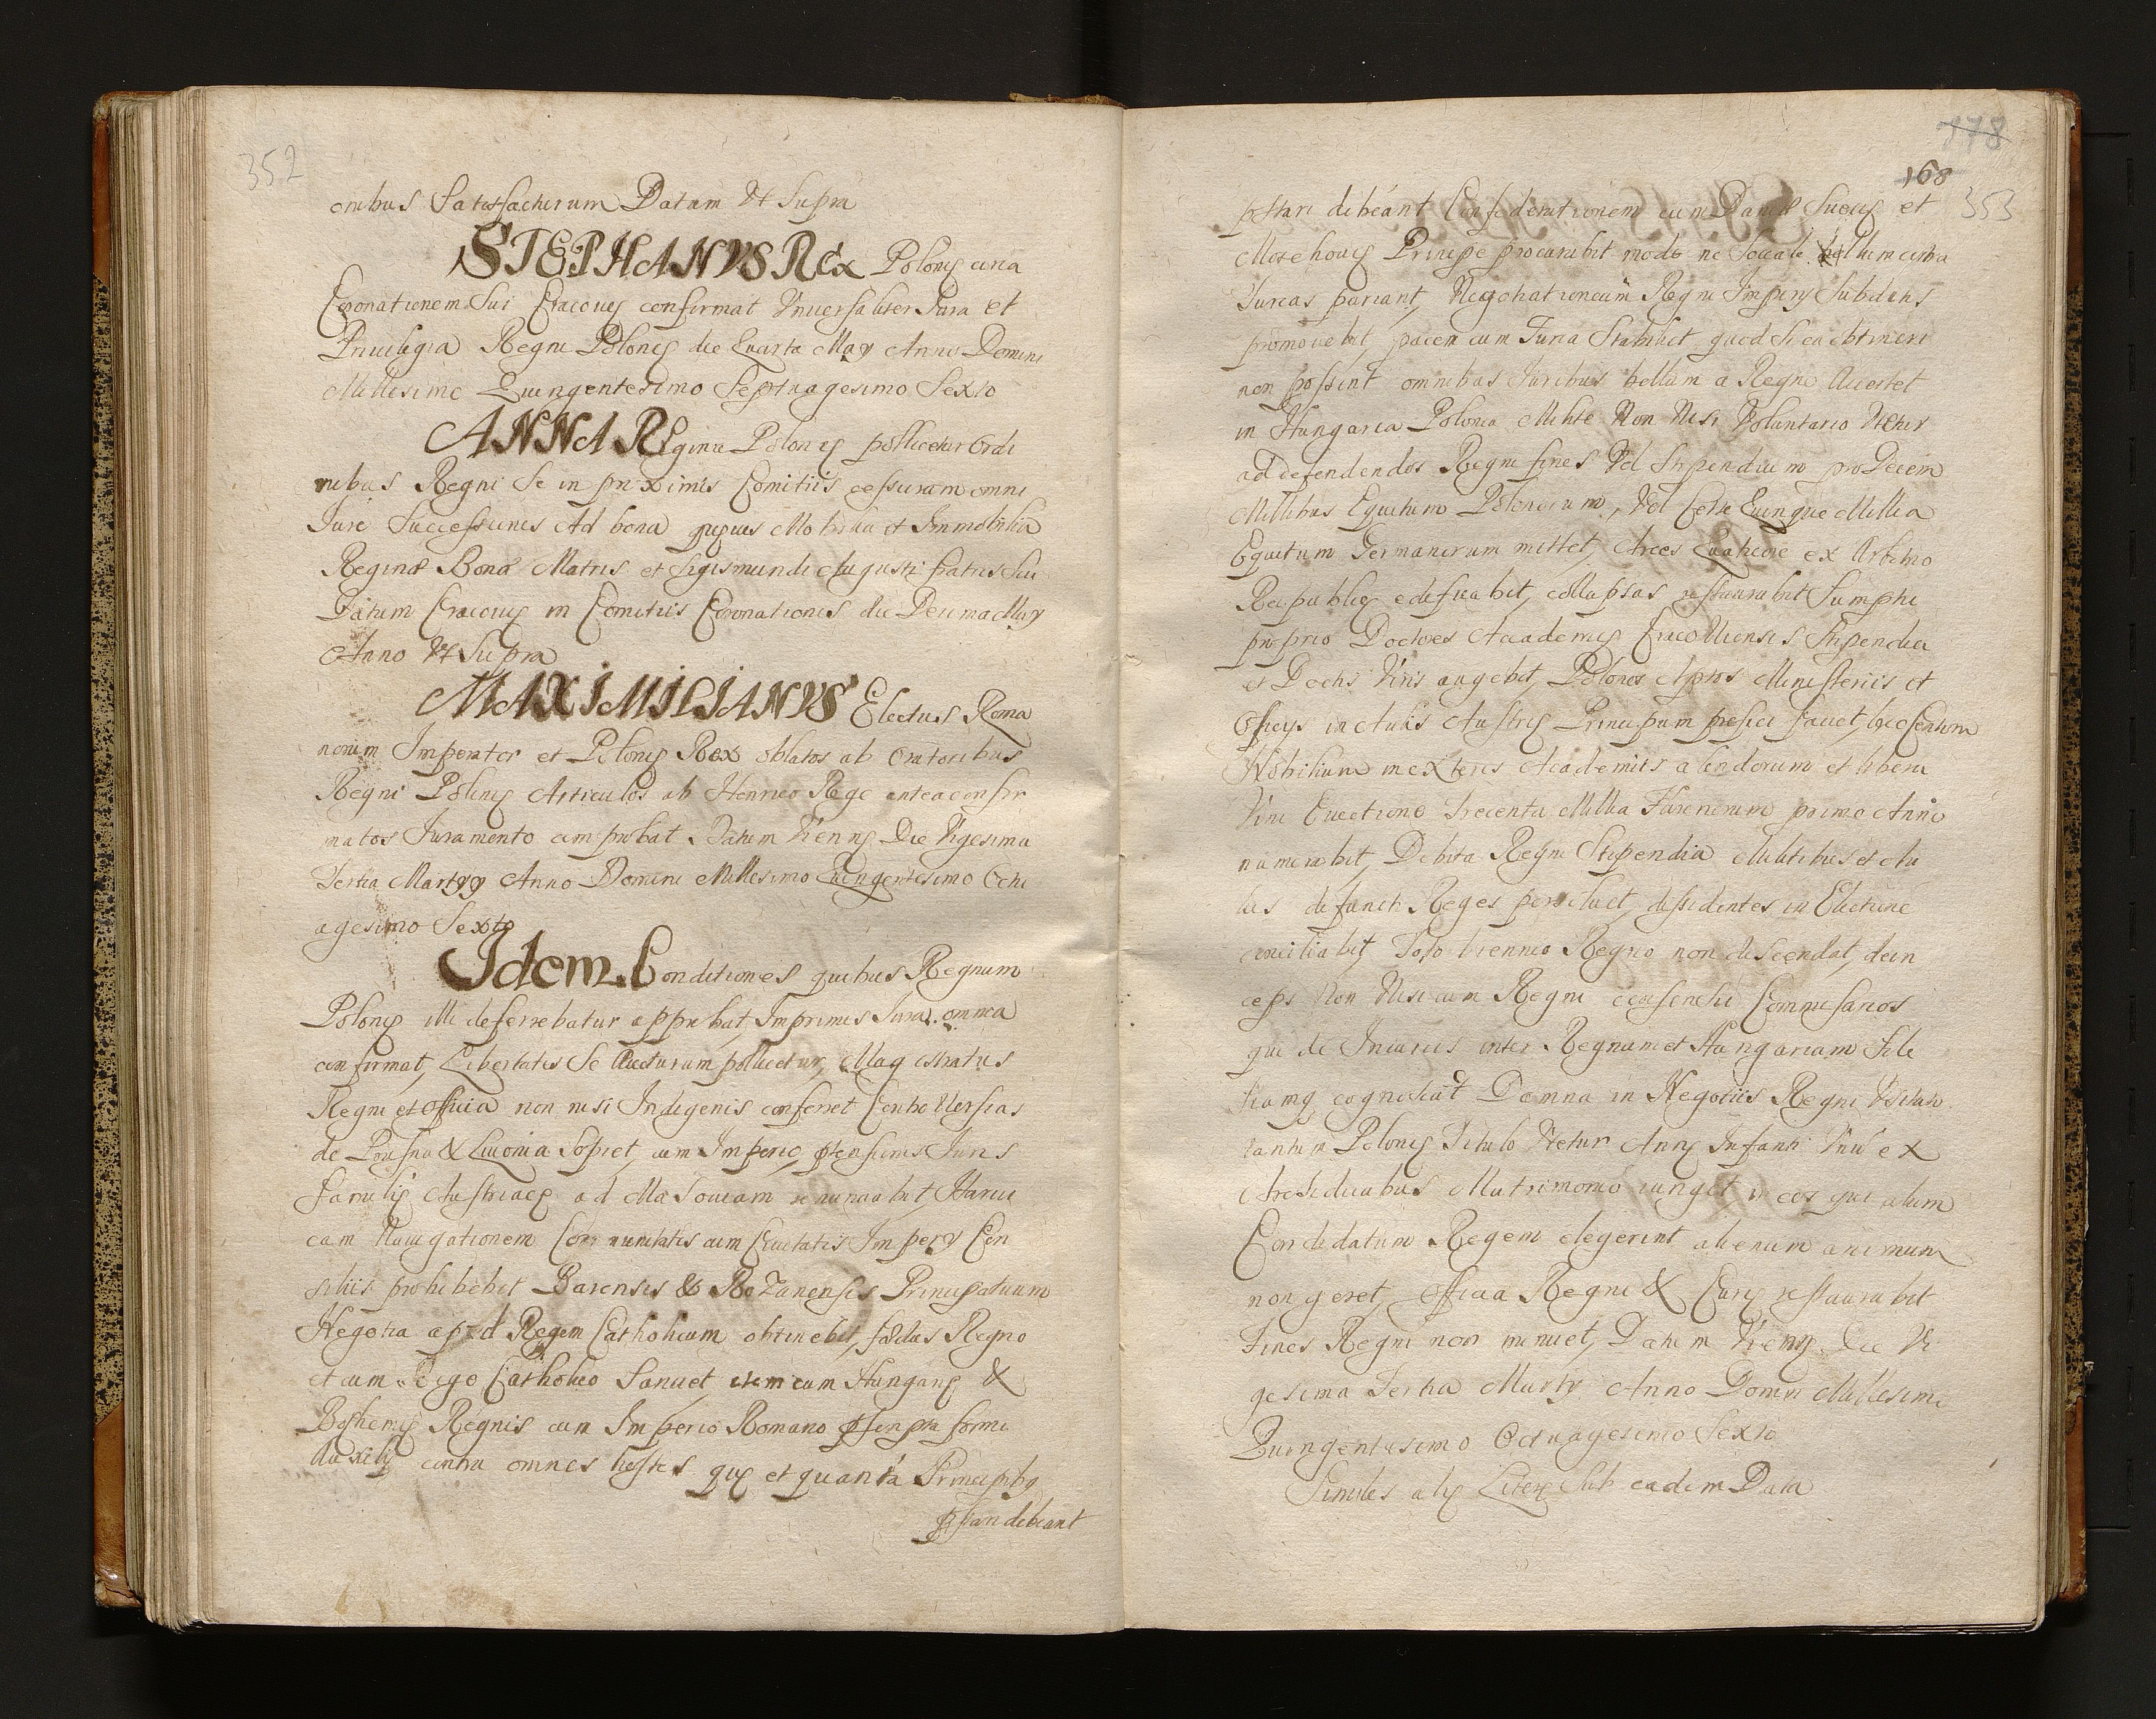 352
onibus Satisfacturum Datum Vt Supra
STEPHANVS REx Polonię circa
Coronationem Sui Cracouię confirmat Vniuersaliter Iura et
Priuilegia Regni Polonię die Quarta May Anno Domini
Millesimo Quingentesimo Septuagesimo Sexto
ANNA REgina Polonię pollicetur Ordi
nibus Regni Se in proximis Comitiis cessuram omni
Iure Successionis Ad bona Mobilia et Immobilia
Reginæ Bonæ Matris et Sigismundi Augusti fratris Sui
Datum Cracouię in Comitiis Coronationis die Decima May
Anno Vt Supra
MAXIMILIANVS Electus Roma
norum Imperator et Polonię Rex oblatos ab Oratoribus
Regni Polonię Articulos ab Henrico Rege antea confir
matos Iuramento comprobat Datum Viennę Die Vigesima
Tertia Martyy Anno Domini Millesimo Quingentesimo Octu
agesimo Sexto
Idem Conditiones quibus Regnum
Polonię illi deferrebatur approbat, Imprimis Iura omnia
confirmat, Libertates Se Aucturum pollicetur, Magistratus
Regni et Officia non nisi Indigenis conferret Controuersias
de Prussia & Liuonia Sopiet, cum Imperio, Iuris
familię Austriacę ad Masouiam renunciabit, Narui
cam Nauigationem Communitatis cum Ciuitatis Impery Con
siliis prohibebit Barensis & Rozanensis Principatuum
Negotia apud Regem Catholicum obtinebit, fædus Regno
et cum Rege Catholico Sanciet item cum Hungarię &
Bohemię Regnis cum Imperio Romano
Auxilię contra omnes hostes quę et quanta Principibq
pstari debeant
178
168
353
pstari debeant Confederationem cum Danis Suecię et
Moschouię Principe procurabit modo ne Sociale bellum contra
Turcas pariant, Negotiationem Regni Impery Subditis
promouebit, pacem cum Turca Stabiliet quod si ea obtineri
non possint omnibus Iuribus bellum a Regno Auertet
in Hungaria Polono Milite Non Nisi Voluntario Vtetur
ad defendendos Regni fines Vel Stipendium pro Decem
Millibus Equitum Polonorum, Vel Quinque Millia
Equitum Germanorum mittet, Arces Quatuor ex Arbitrio
Reipublicę edificabit, collapsas restaurabit Sumptu
proprio Doctores Academię Cracouiensis Stipendia
et Doctis Viris augebit, Polonos Aptos Ministeriis et
Officys in Aulis Austrię Principum prefici faciet, loco Centum
Nobilium in exteris Academiis alendorum et libera
Vini Euectione Trecenta Millia Florenorum primo Anno
numerabit, Debita Regni Stipendia Militibus et Au
lus defuncti Reges persoluet, dissidentes in Electione
conciliabit, Toto biennio Regno non discendat, dein
ceps Non Nisi cum Regni consensu Commisarios
qui de Iniuriis inter Regnum et Hungariam Sile
siamq cognoscat Domna in Negotiis Regni
tantum Polonię Titulo Vtetur Annę Infanti Vnū ex
Archiducibus Matrimonio iunget in eos qui alium
Candidatum Regem elegerint alienum animum
non geret, Officia Regni & Curię restaurabit
Fines Regni non minuet, Datum Viennę Die Vi
gesima Tertia Marty Anno Domini Millesimo
Quingentesimo Octuagesimo Sexto
Similes alię Literę Sub eadem Data